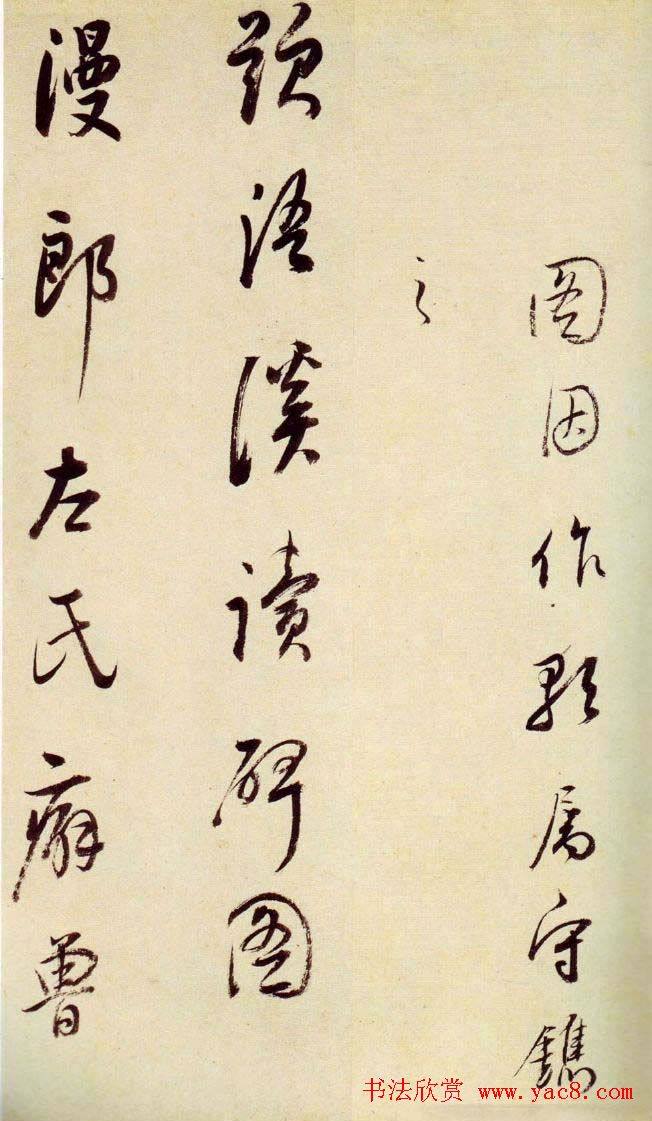 圖因作歌屬守鐫
之
題浯溪讀碑圖
漫郎左氏癖魯
书法欣赏 www.yac8.com